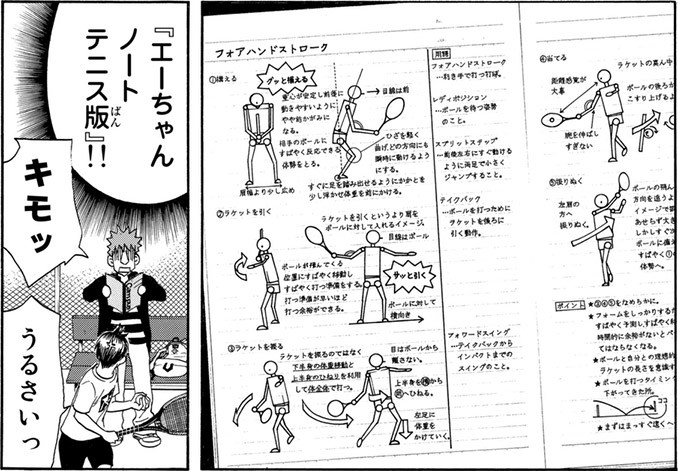 フォアハンドストローク
①構える
グッと構える
重心が安定し前後に
動きやすいように
やや前かがみに
なる。
相手のボールに
すばやく反応できる
体勢をとる。
肩幅より少し広め
目線は前
ひざを軽く
曲げ、どの方向にも
瞬時に動けるよう
にする。
すぐに足を踏み出せるようにかかとを
少し浮かせ体重を前にかける。
②ラケットを引く
ラケットを引くというより肩を
ボールに対して入れるイメージ
目線はボール
ボールが飛んでくる
位置にすばやく移動し
すばやく打つ準備をする。
打つ準備が早いほど
打つ余裕ができる。
サッと引く
ボールに対して
横向き
③ラケットを振る
ラケットを振るのではなく
下半身の体重移動と
上半身のひねりを利用
して体全体で打つ。
目はボールから
離さない。
上半身を横から
前へひねる。
左足に
体重を
かけていく。
用語
フォアハンドストローク
…利き手で打つ打球。
レディポジション
…ボールを待つ姿勢
のこと。
スプリットステップ
…前後左右にすぐ動ける
ように両足で小さく
ジャンプすること。
テイクバック
…ボールを打つために
ラケットを後ろに
引く動作。
フォワードスイング
…テイクバックから
インパクトまでの
スイングのこと。
④当てる
ラケットの真ん中
距離感覚が
大事
ボールの後ろか
こすり上げるよ
腕を伸ばし
すぎない
⑤振りぬく
左肩の
方へ
振りぬく。
ボールの飛ん
方向を追うよ
イメージで振
あせらず大き
しかしすぐ次
ボールに備え
すばやく①の
体勢へ。
ポイント
★③④⑤をなめらかに。
★フォームをしっかりするた
すばやく予測し、すばやく
時間的に余裕がないとベ
てはならなくなる。
★ボールと自分との理想的
ラケットの長さを意識す
★ボールを打つタイミン
下がってきた所。
ココ
★まずはまっすぐ遠くへ
『エーちゃん
ノート
テニス版』!!
ばん
キモッ
うるさいっ